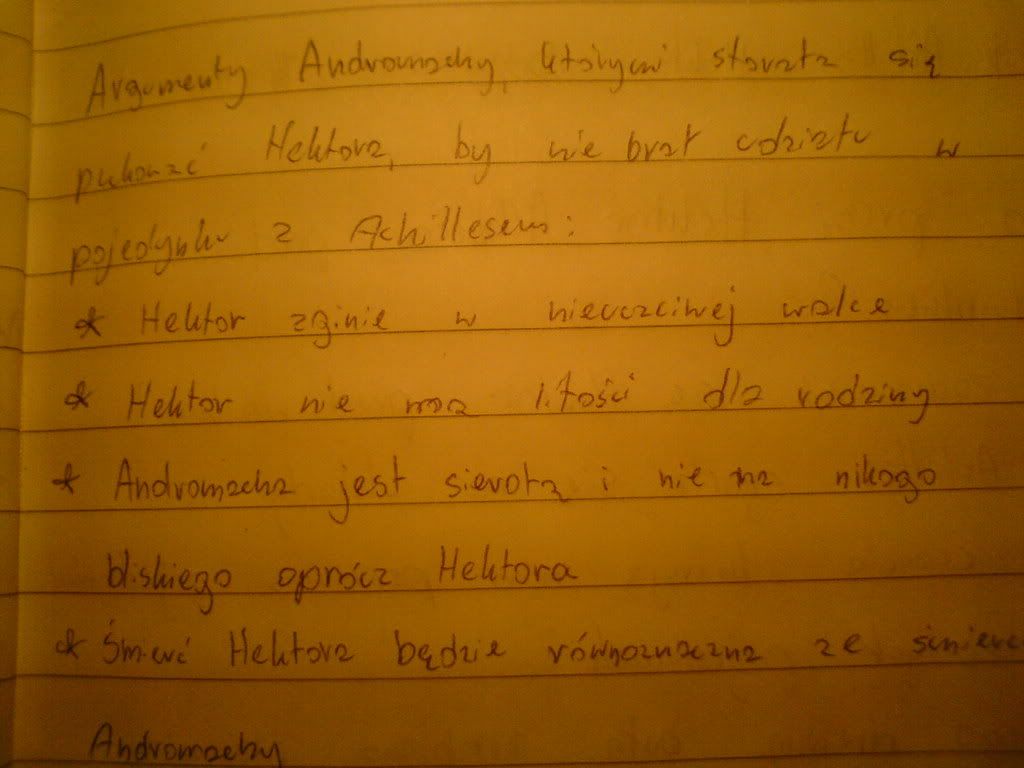 Argumenty Andromachy, którymi starała się
pukonać Hektora, by nie brał udziału w
pojedynku z Achillesem:
* Hektor zginie w nieuczciwej walce
* Hektor nie ma litości dla rodziny
* Andromacha jest sierotą i nie ma nikogo
bliskiego oprócz Hektora
* Śmierć Hektora będzie równoznaczna ze śmierc
Andromachy